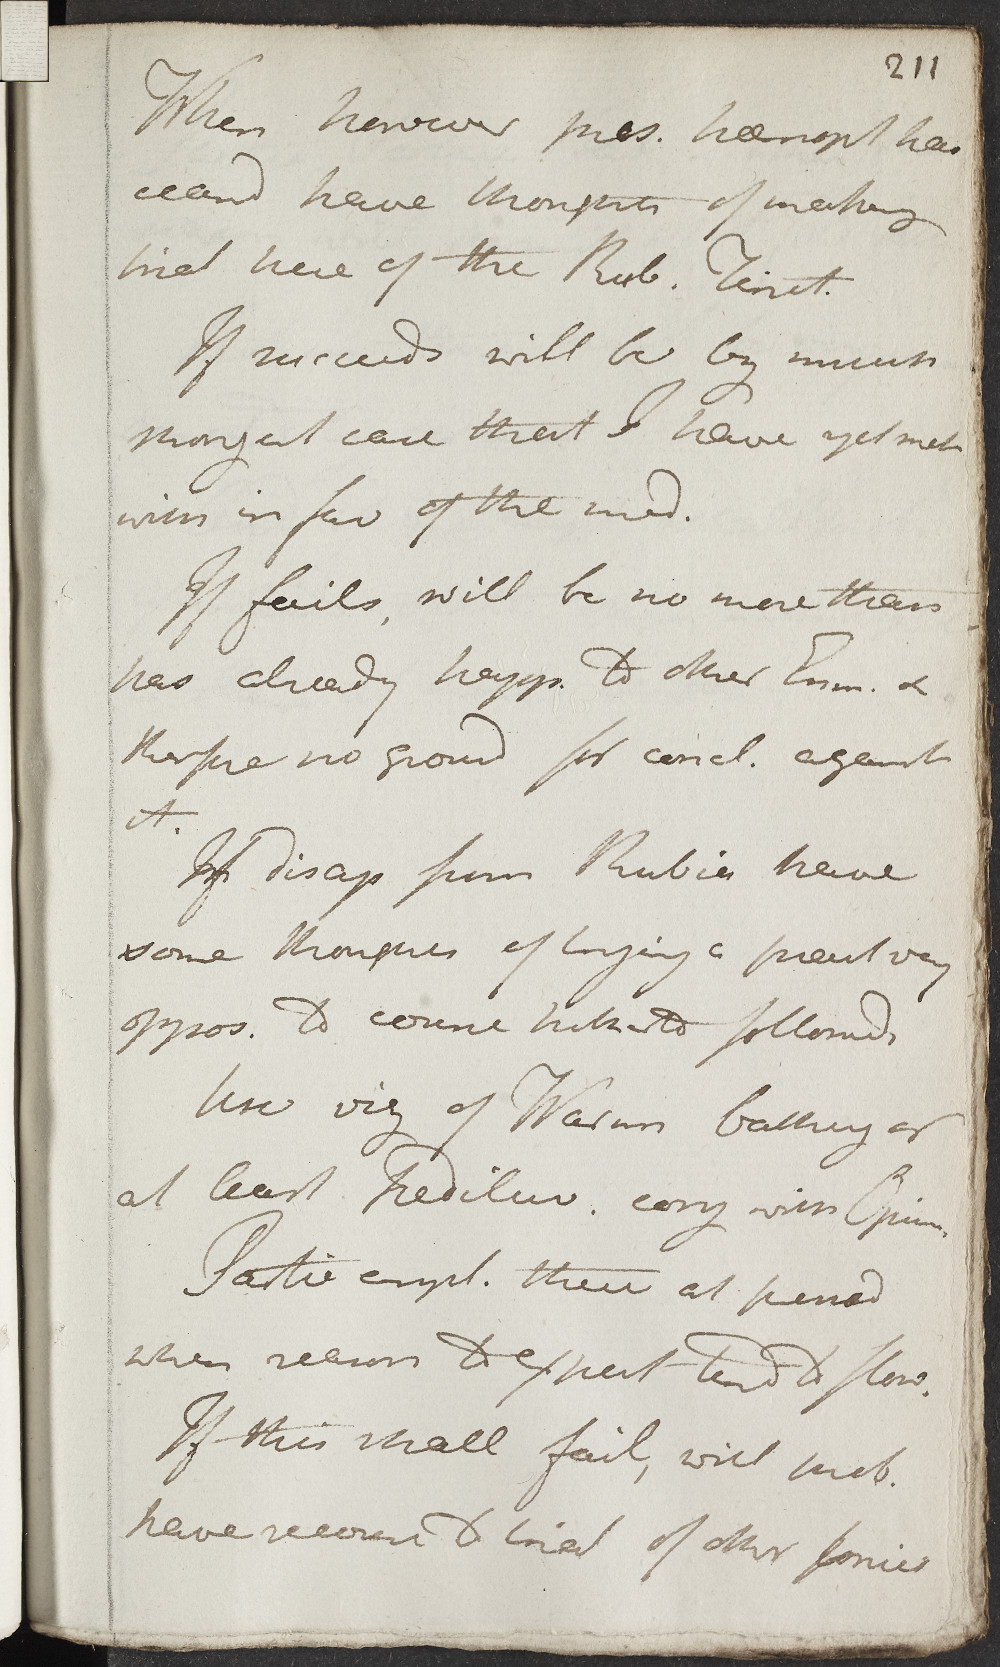 211
When however pres. hæmopt has
ceasd have thoughts of making
trial here of the Rub. Tinct.
If succeeds will be by much
strongest case that I have yet met
with in fav of the med.
If fails, will be no more than
has already happ. to other Emm. &
therfore no ground for concl. against
it.
If disap from Rubia have
some thoughts of trying a pract very
oppos. to course hitherto followed
Use viz of Warm bathing or
at least Pediluv. conj with Opium.
Partic empl. these at period
when reason to expect tend to flow.
If this shall fail, will prob.
have recourse to trial of other